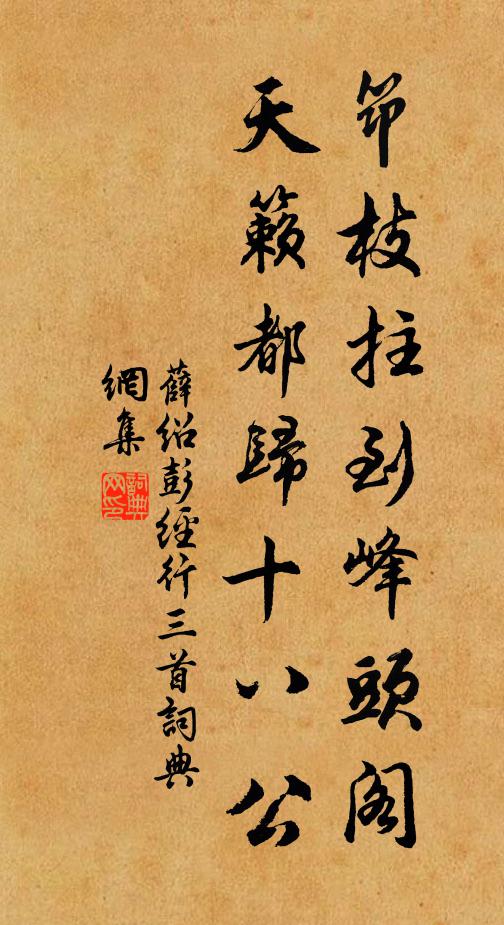 筇枝拄到峰頭閣
天籟都歸十八公
薛紹彭經行三首詞典
網集
詞典
网印